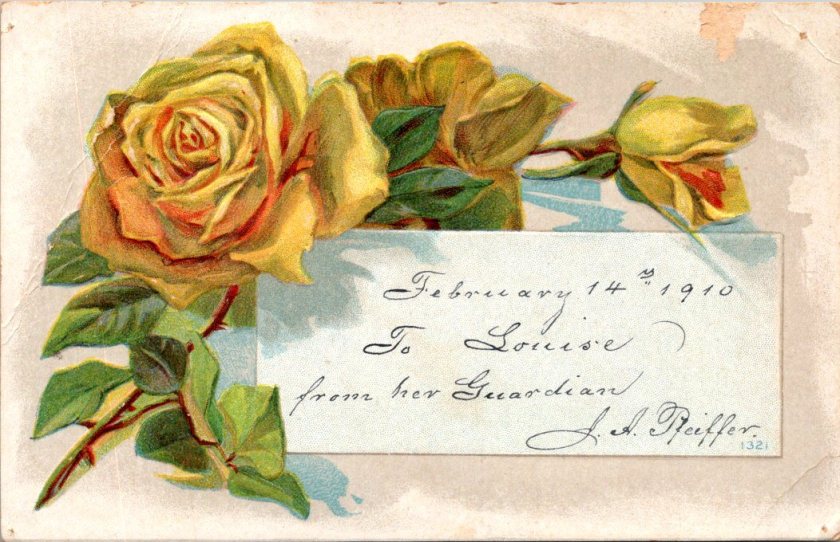 February 14th 1910
To Louise
from her Guardian
J. A. Pfeiffer.
1321